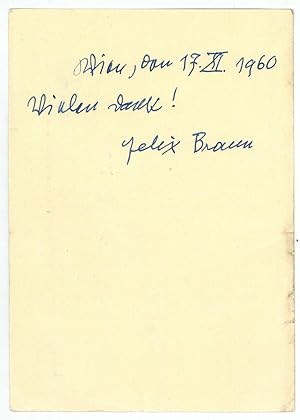 Wien, den 17. XI. 1960
Vielen Dank!
Felix Braun